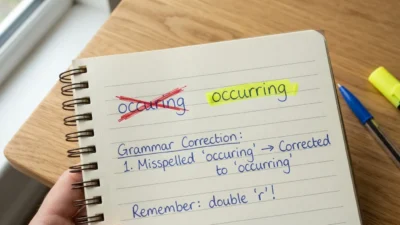 occuring occurring
Grammar Correction:
1. Misspelled 'occuring' → Corrected
to 'occurring'
Remember: double 'r'!